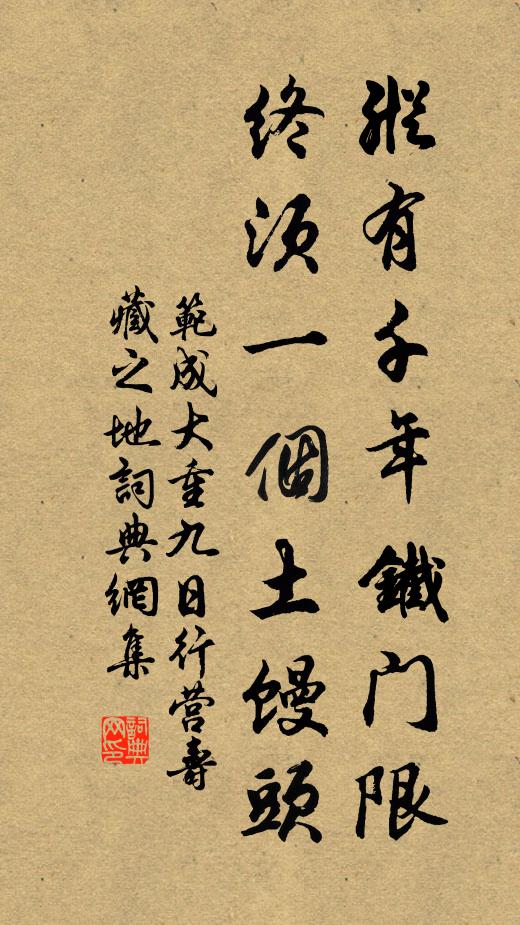 縱有千年鐵门限
终須一個土馒頭
範成大重九日行营壽
藏之地詞典網集
詞典网印